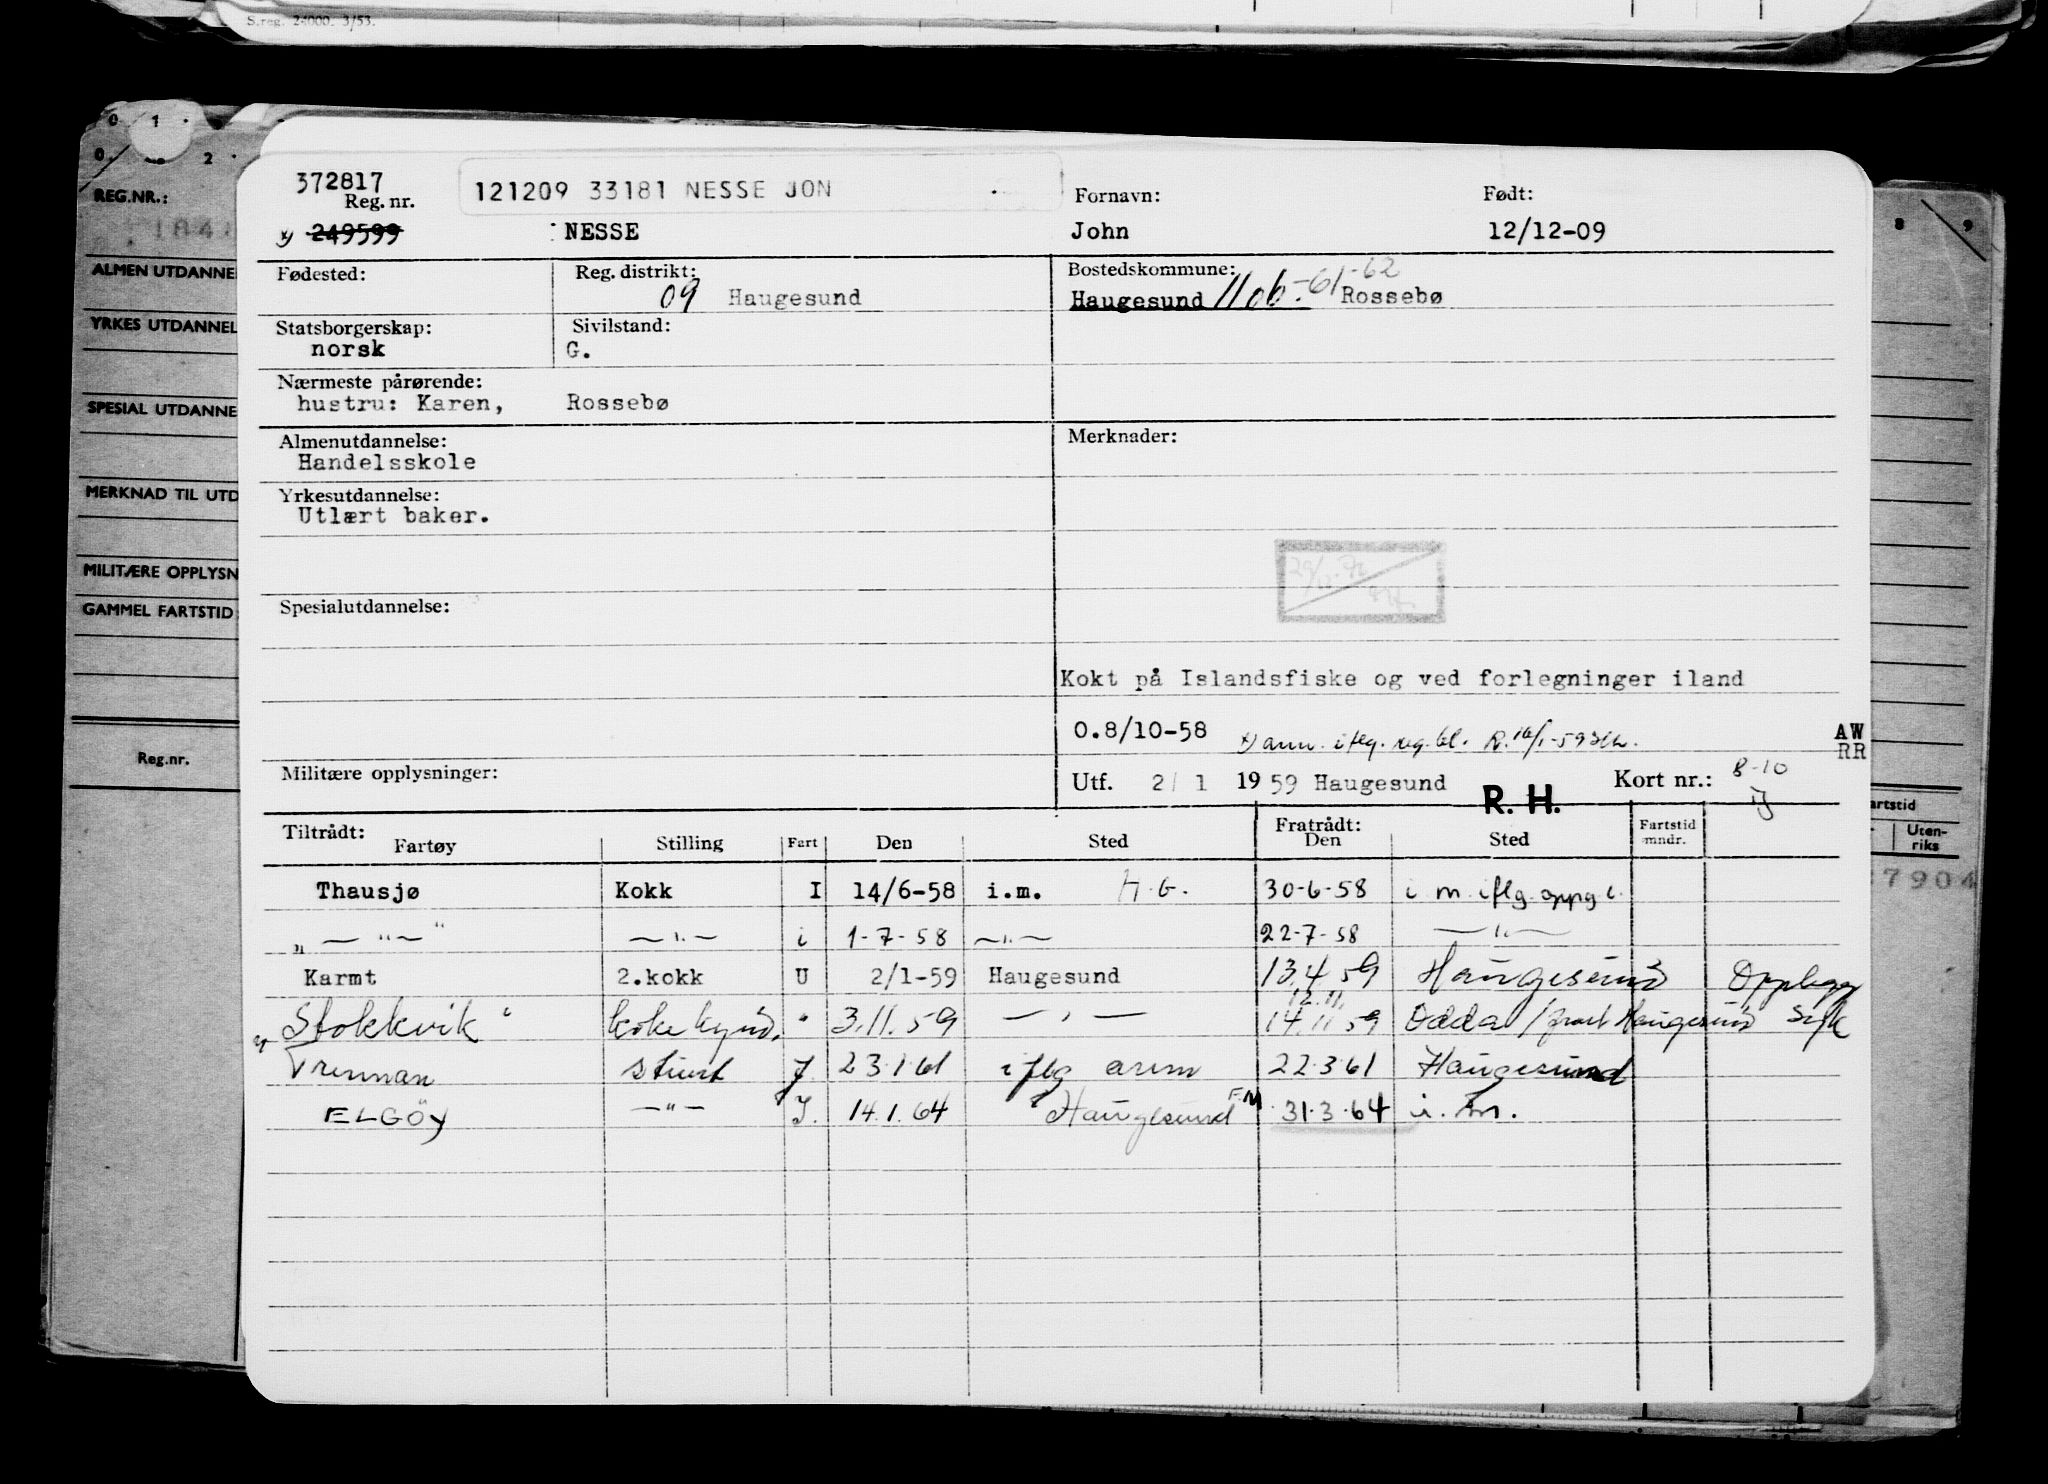 S.reg. 24000. 3/53.
0 1
0 2
8 9
REG.NR.:
ALMEN UTDANNE
YRKES UTDANNEL
SPESIAL UTDANNE
MERKNAD TIL UTD
MILITÆRE OPPLYSN
GAMMEL FARTSTID
Reg.nr.
artstid
Uten-
riks
7904
372817
Reg. nr.
121209 33181 NESSE JON
Fornavn:
Født:
x) 249599
NESSE
John
12/12-09
Fødested:
Reg. distrikt:
09 Haugesund
Bostedskommune:
Haugesund 1106.-61-62 Rossebø
Statsborgerskap:
norsk
Sivilstand:
G.
Nærmeste pårørende:
hustru: Karen, Rossebø
Almenutdannelse:
Handelsskole
Merknader:
Yrkesutdannelse:
Utlært baker.
Spesialutdannelse:
Kokt på Islandsfiske og ved forlegninger iland
O.8/10-58 x) ann. iflg. reg. bl. R. 16/1-59
AW
RR
Militære opplysninger:
Utf. 2/ 1 1959 Haugesund
R. H.
Kort nr.: 8-10
Tiltrådt:
Fartøy Stilling Fart Den Sted
Fratrådt:
Den Sted
Fartstid
mndr.
Thausjø Kokk I 14/6-58 i.m. H.G. 30-6-58 i m. iflg. oppg.
" — " — " — " — i 1-7-58 — " — 22-7-58 — " —
Karmt 2.kokk U 2/1-59 Haugesund 13.4.59 Haugesund Opplegg
12.11.
Stokkvik " koke kynd. " 3.11.59 — " — 14.11.59 Odda / Haugesund Syk
Trennan stuert J 23.1.61 iflg arem 22.3.61 Haugesund
ELGÖY — " — J. 14.1.64 Haugesund F.M 31.3.64 i. m.